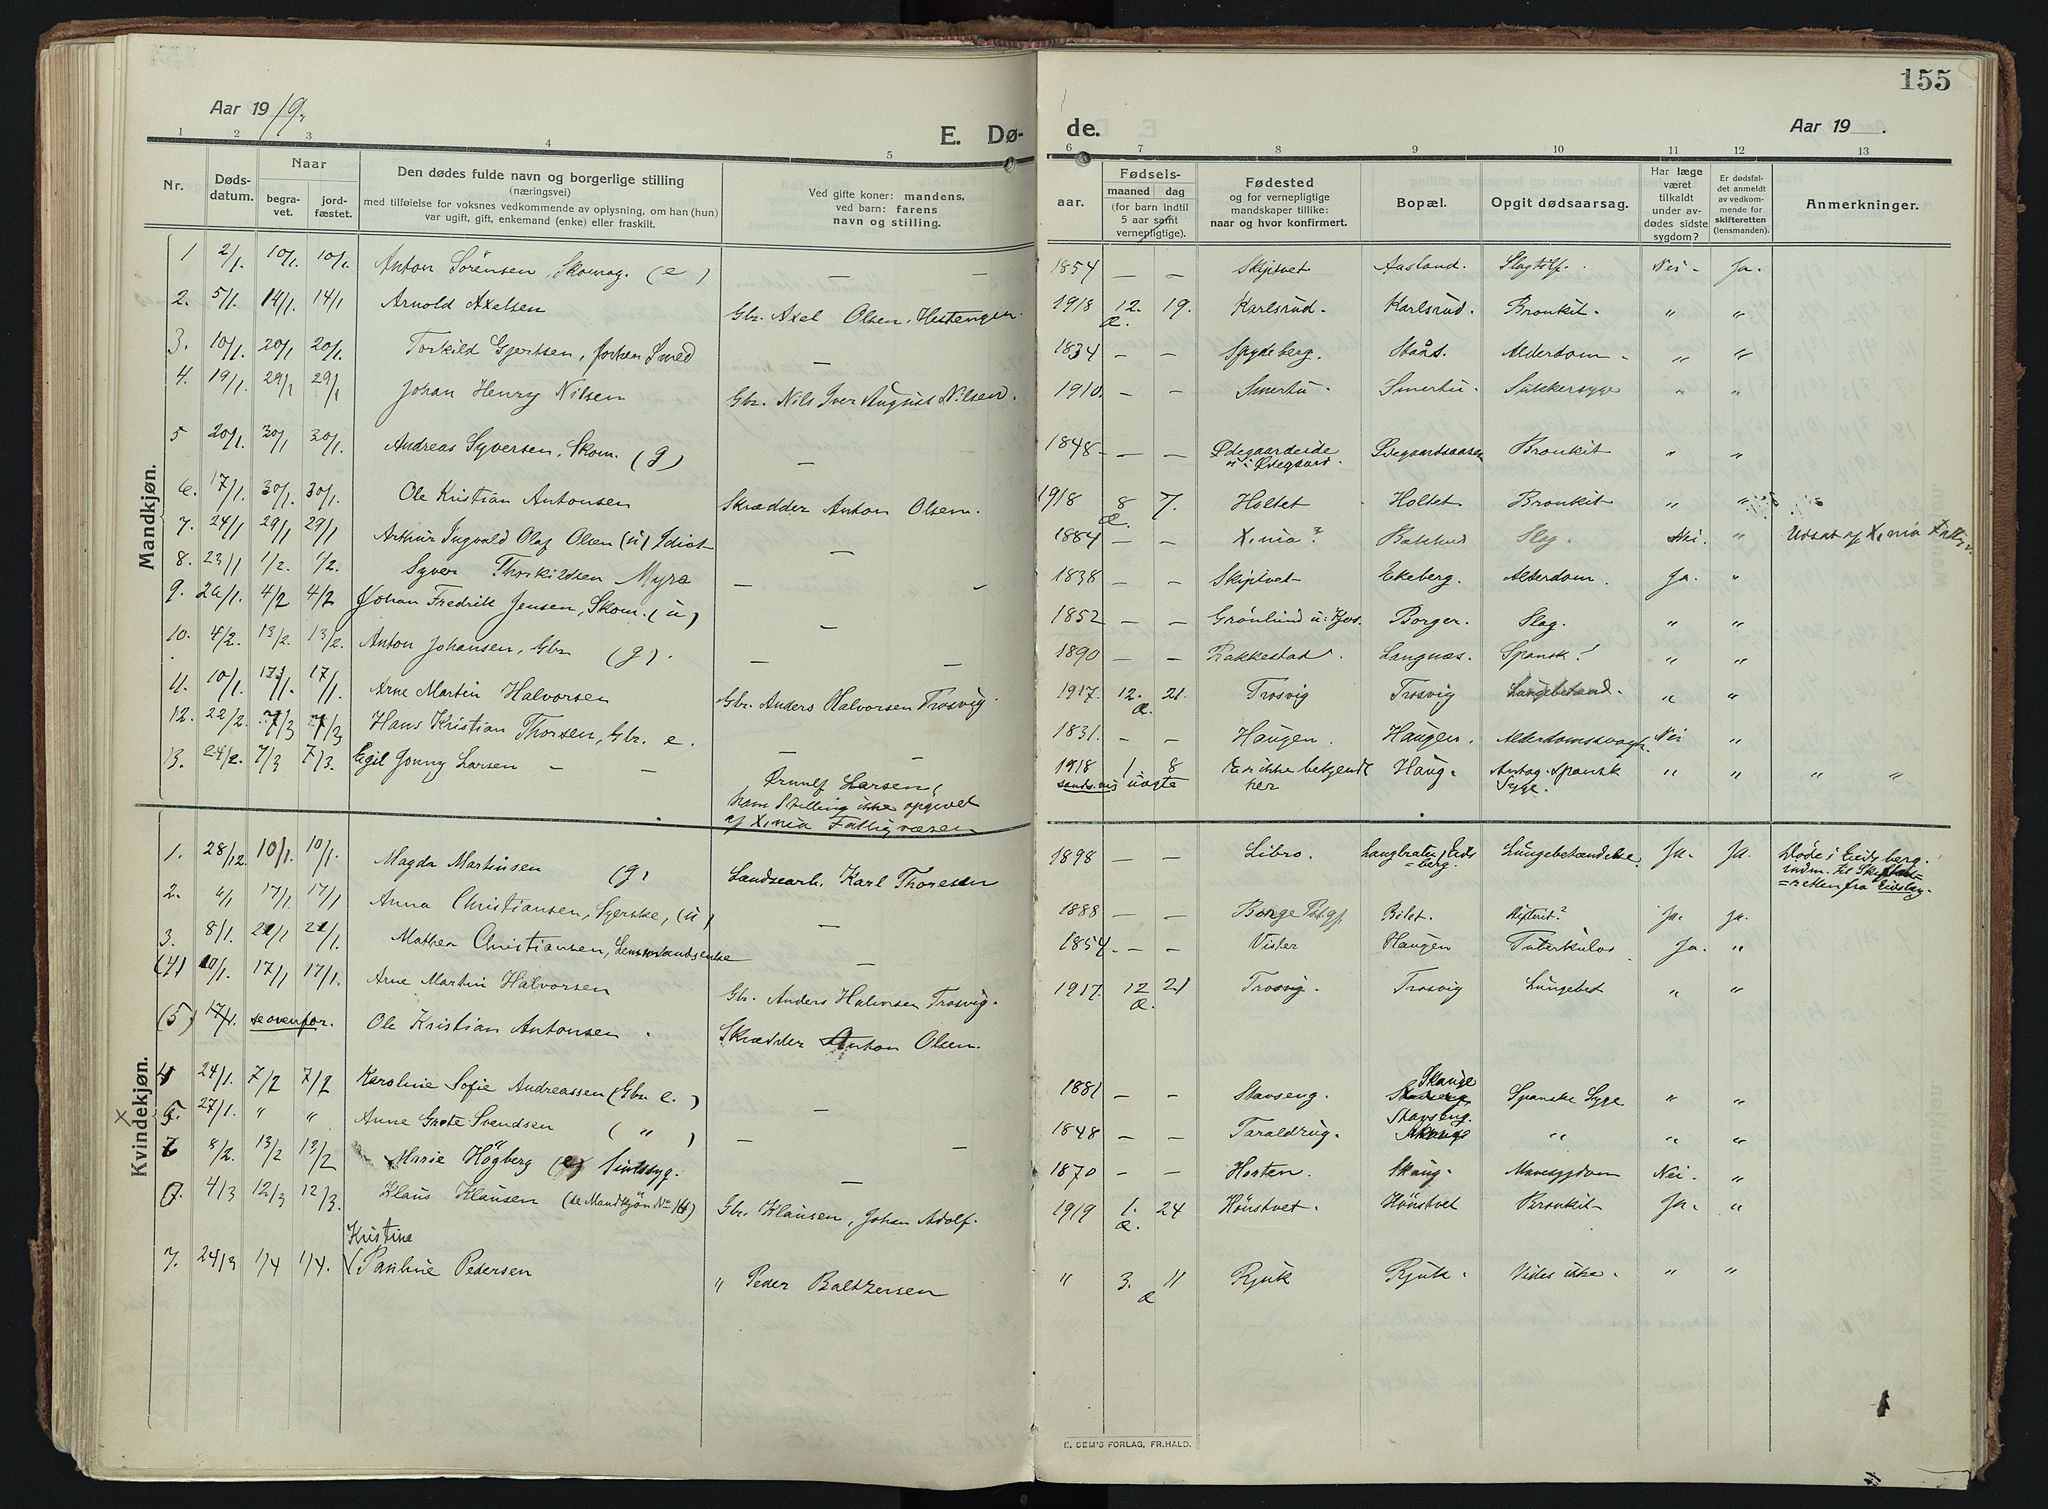 155
Aar 19 19.
E. Dø-
de.
Aar 19 .
1 2 3 4 5
6 7 8 9 10 11 12 13
Nr.
Døds-
datum.
Naar
begra-
vet.
jord-
fæstet.
Den dødes fulde navn og borgerlige stilling
(næringsvei)
med tilføielse for voksnes vedkommende av oplysning, om han (hun)
var ugift, gift, enkemand (enke) eller fraskilt.
Ved gifte koner: mandens,
ved barn: farens
navn og stilling.
Fødsels-
aar.
maaned dag
(for barn indtil
5 aar samt
vernepligtige).
Fødested
og for vernepligtige
mandskaper tillike:
naar og hvor konfirmert.
Bopæl.
Opgit dødsaarsag.
Har læge
været
tilkaldt
under av-
dødes sidste
sygdom?
Er dødsfal-
det anmeldt
av vedkom-
mende for
skifteretten
(lensmanden).
Anmerkninger.
Mandkjøn.
1 2/1. 10/1. 10/1. Anton Sörensen, Skomag. (e) — — 1854 — — Skiptvet Aasland. Slagtilf. Nei - Ja.
2. 5/1. 14/1 14/1 Arnold Axelsen Gbr. Axel Olsen, Hestengen. 1918 12. Æ. 19. Karlsrud. Karlsrud. Bronkit. " "
3. 10/1. 20/1 20/1. Torkild Gjertsen, Smed — 1834 — — Spydeberg. Staås. Alderdom - " "
4. 19/1. 29/1 29/1 Johan Henry Nilsen Gbr. Nils Iver August Nilsen. 1910. — — Smertu. Smertu. Sukkersyge " "
5 20/1. 30/1 30/1. Andreas Syversen, Skom. (g) — 1848 - — — Ødegaardeide
u. Ødegaard. Ødegaardsaasen Bronkit " "
6. 17/1. 30/1. 30/1. Ole Kristian Antonsen Skrædder Anton Olsen. 1918 8 Æ. 7. Holtet Holtet Bronkit " "
7. 24/1 29/1 29/1 Arthur Ingvald Olaf Olsen (u) Idiot — 1884 — — X.nia? Bakkud Slag. Nei. " Udsat af X.nia Fattigv.
8. 23/1 1/2. 1/2. Syver Thorkildsen Myra — 1838 — — Skiptvet Ekeberg. Alderdom. Ja. "
9. 26/1. 4/2 4/2 Johan Fredrik Jensen, Skom. (u) — 1852 — — Grønlund u. Borger. Slag. " "
10. 4/2. 13/2. 13/2. Anton Johansen, Gbr. (g). — — 1890 — — Rakkestad. Langnæs. Spansk! " "
11. 10/1. 17/1. 17/1. Arne Martin Halvorsen Gbr. Anders Halvorsen Trosvig. 1917. 12. Æ. 21. Trosvig Trosvig Lungebetænd. " "
12. 22/2. 7/3 7/3 Hans Kristian Thorsen, Gbr. e. — 1831. — — Haugen. Haugen. Alderdomssvagh. Nei "
13. 24/2. 7/3 7/3. Egil Jonny Larsen — — Larsen,
hans Stilling ikke opgivet
af X.nia Fattigvæsen 1918 1. 8
sands.vis uægte Er ikke bekjendt
her Haug. Antag. Spansk
Syge. " " " "
Kvindekjøn.
1. 28/12. 10/1. 10/1. Magda Martinsen (g) Landsearb. Karl Thoresen 1898 — — Libro. Lungebetændelse Ja. Ja. Døde i Eidsberg.
2. 4/1 17/1 17/1 Anna Christiansen, Syerske, (u) — 1888 — — Borge Bilet. Ja. Ja.
3. 8/1. 21/1 21/1. Mathea Christiansen, — 1854. — — Visler Haugen Tuberkulos Ja. "
(4) 10/1. 17/1 17/1. Arne Martin Halvorsen Gbr. Anders Halvorsen Trosvig. 1917. 12 Æ. 21 Trosvig. Trosvig Lungebet " "
(5) 17/1. se ovenfor. Ole Kristian Antonsen. Skrædder Anton Olsen.
4 24/1. 7/2 7/2 Karoline Sofie Andreassen (Gbr e.) — 1881 — — Stavseng. Skauge
Stavseng. Spanske Syge " "
x 5. 27/1. " " Anne Grete Svendsen ( " ) — — 1848 — — Taraldrug. Skauge " " "
6 8/2. 13/2 13/2 Marie Högberg (e) Sindssyg. — 1870 — — Horten. Skaug. Mavesygdom Nei. "
7. 4/3 12/3 12/3. Klaus Klausen (se Mandkjön No 16) Gbr. Klausen, Johan Adolf. 1919 1. Æ. 24 Hönstvet. Hönstvet Bronkit. Ja. "
7. 24/3 1/4 1/4. Kristine
Pauline Pedersen " Peder Baltzersen " 3. Æ 11 Rjuk Rjuk. Vides ikke. " "
E. SEM'S FORLAG, FR.HALD.